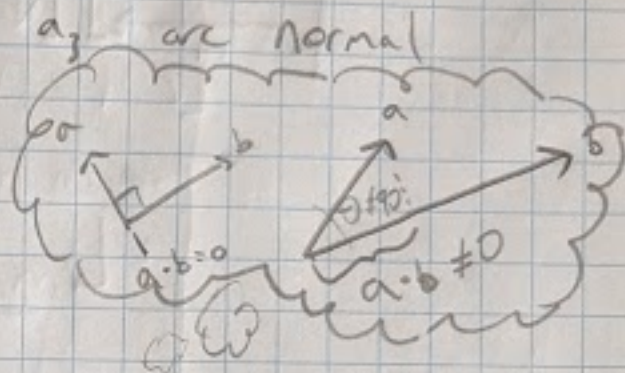 a₃ are normal
a
b
a·b=0
a
b
θ≠90°
a·b≠0